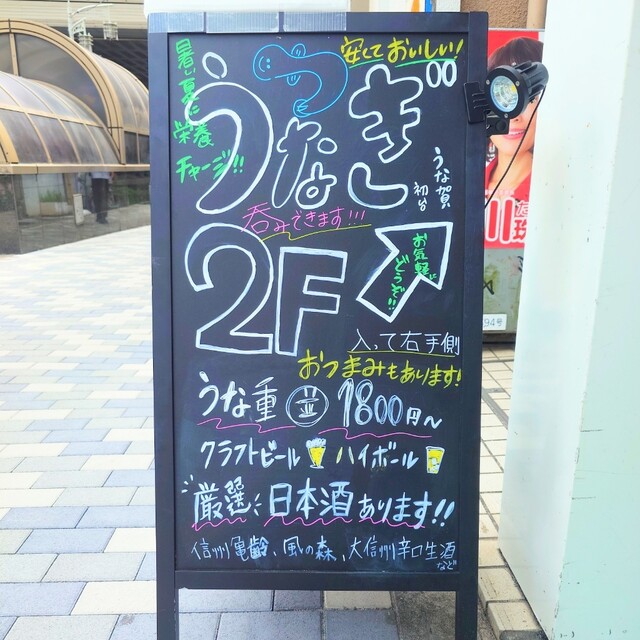 暑い夏に
栄養
チャージ!!
安くておいしい!
うなぎ
うな賀
初台
呑みできます!!!
2F
お気軽に
どうぞ!!
入って右手側
おつまみもあります!
うな重 1800円〜
クラフトビール ハイボール
厳選 日本酒あります!!
信州亀齢、風の森、大信州辛口生酒
など
94号